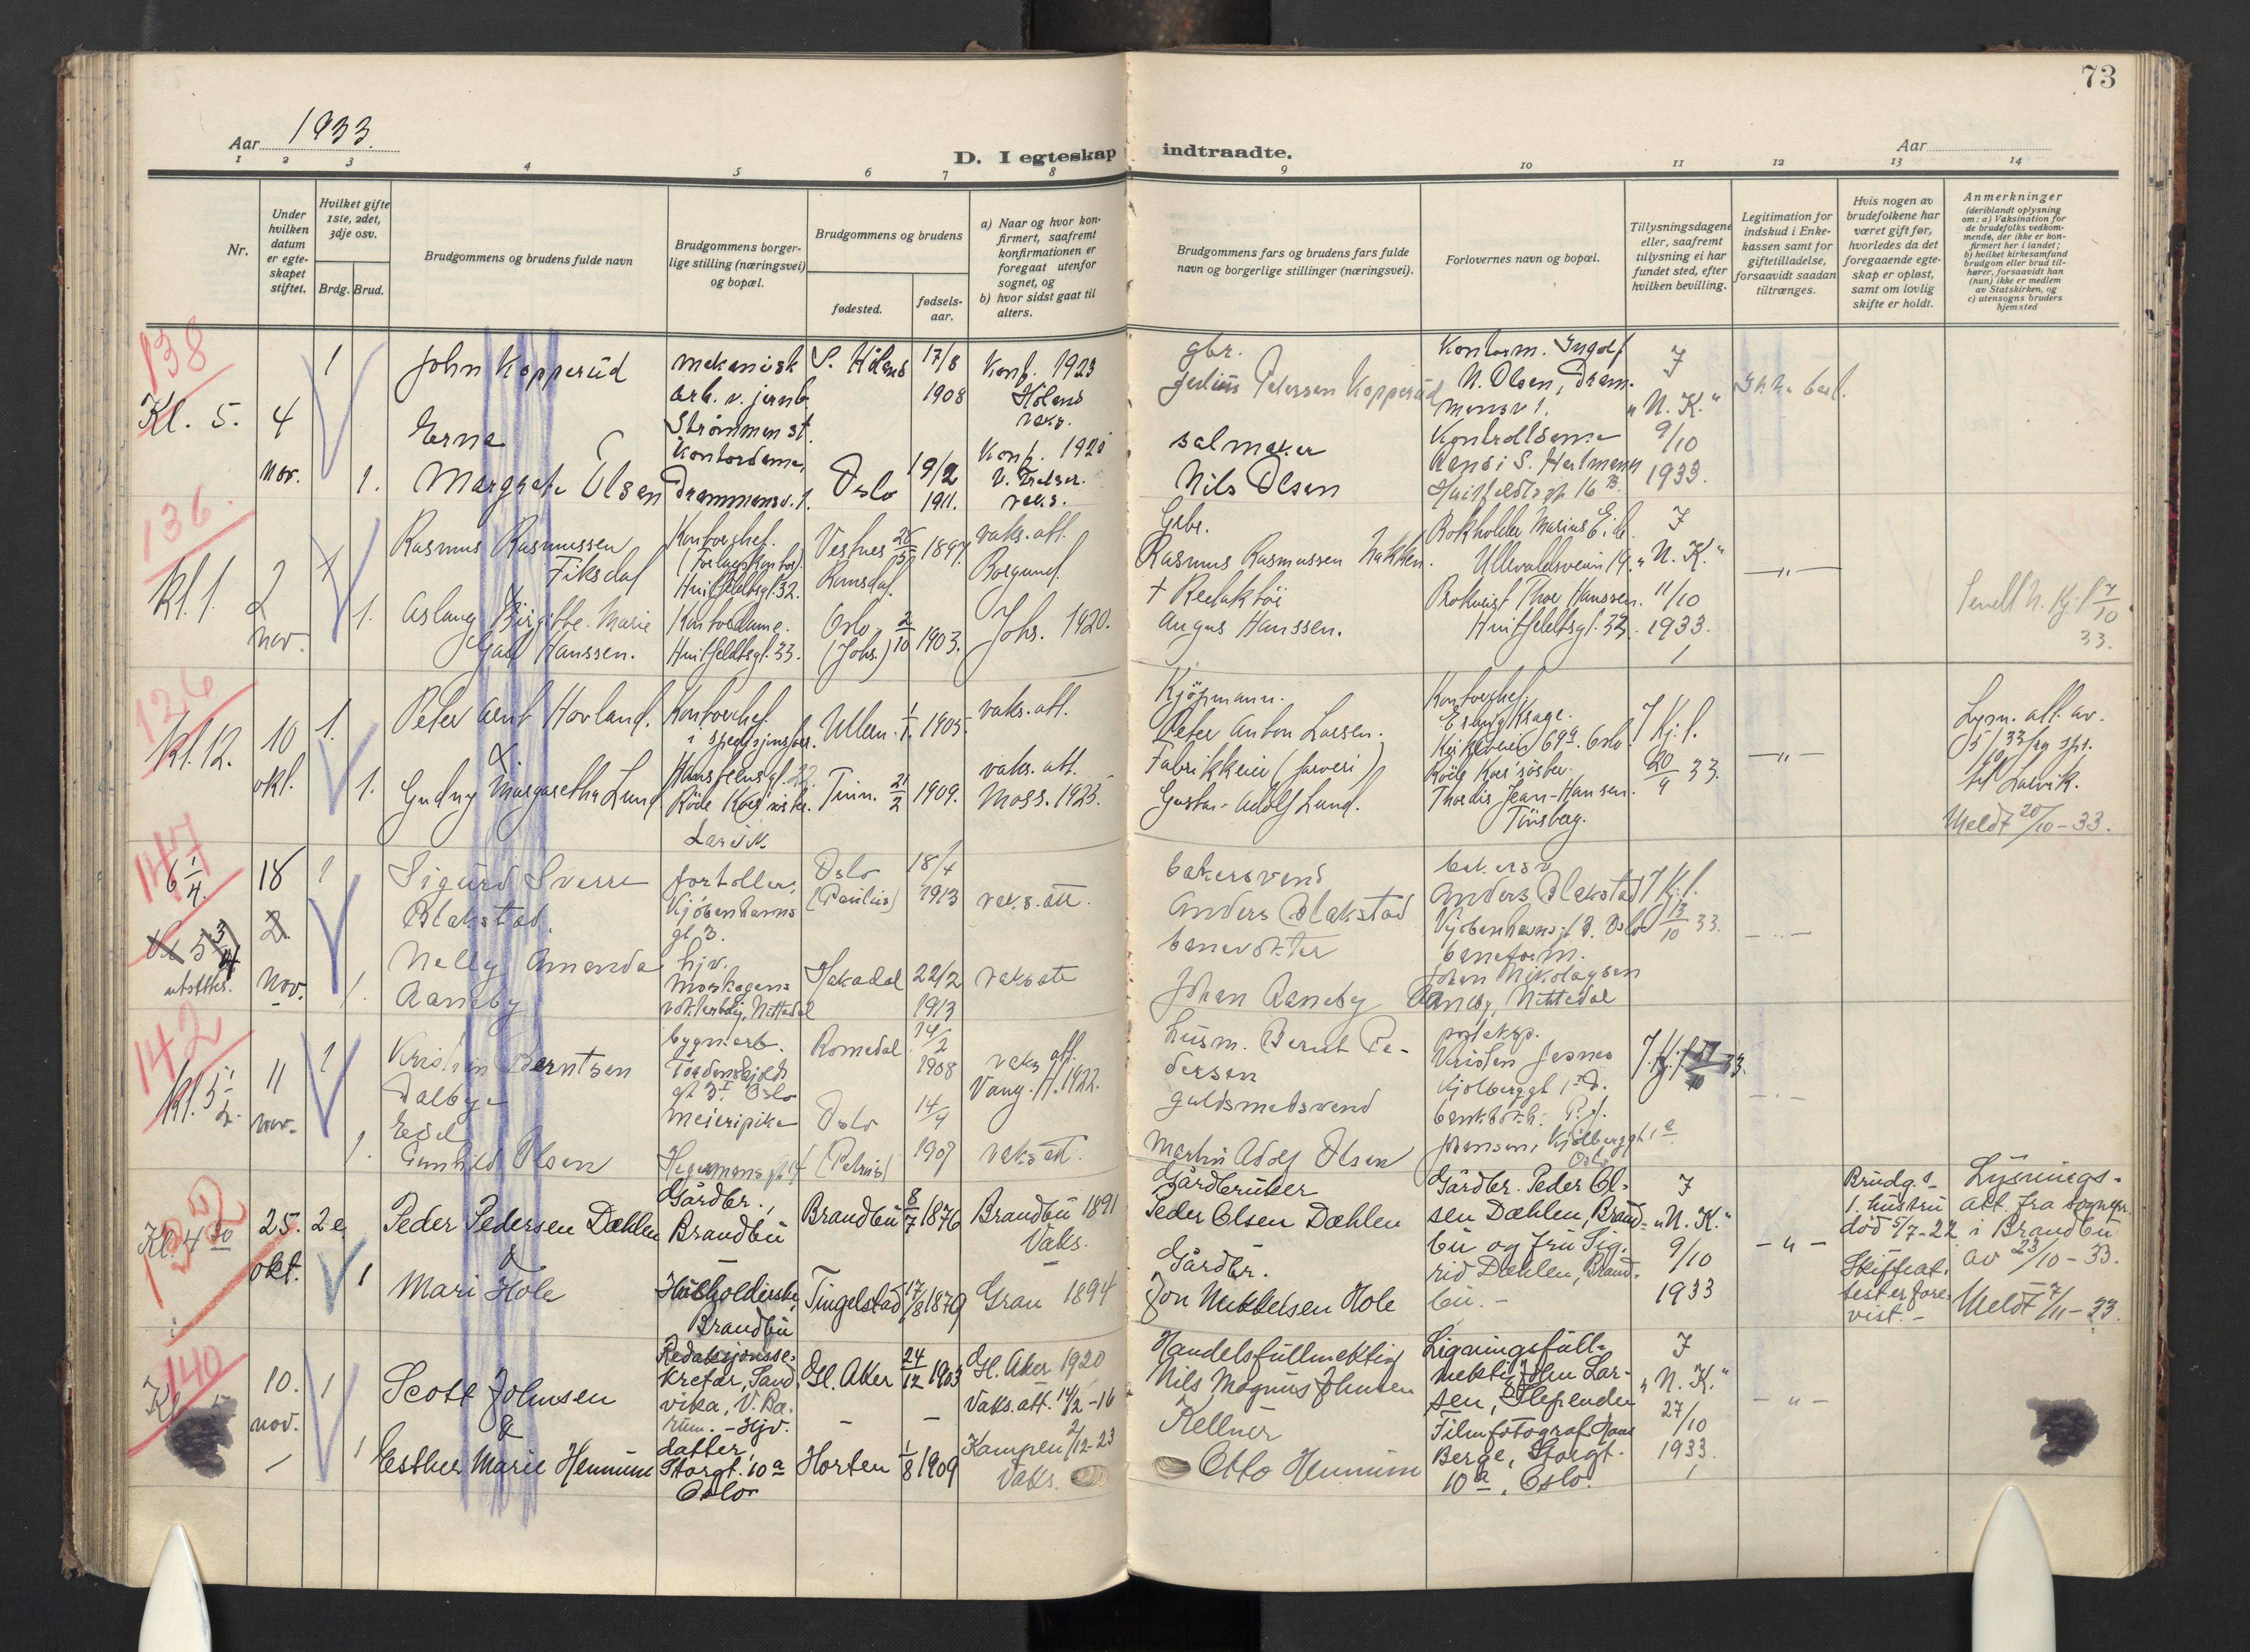 73
Aar 1933.
D. I egteskap indtraadte.
Aar
1 2 3 4 5 6 7 8 9 10 11 12 13 14
Nr.
Under
hvilken
datum
er egte-
skapet
stiftet.
Hvilket gifte
1ste, 2det,
3dje osv.
Brdg. Brud.
Brudgommens og brudens fulde navn
Brudgommens borger-
lige stilling (næringsvei)
og bopæl.
Brudgommens og brudens
fødested.
fødsels-
aar.
a) Naar og hvor kon-
firmert, saafremt
konfirmationen er
foregaat utenfor
sognet, og
b) hvor sidst gaat til
alters.
Brudgommens fars og brudens fars fulde
navn og borgerlige stillinger (næringsvei).
Forlovernes navn og bopæl.
Tillysningsdagene
eller, saafremt
tillysning ei har
fundet sted, efter
hvilken bevilling.
Legitimation for
indskud i Enke-
kassen samt for
giftetilladelse,
forsaavidt saadan
tiltrænges.
Hvis nogen av
brudefolkene har
været gift før,
hvorledes da det
foregaaende egte-
skap er opløst,
samt om lovlig
skifte er holdt.
Anmerkninger
(deriblandt oplysning
om: a) Vaksination for
de brudefolks vedkom-
mende, der ikke er kon-
firmert her i landet;
b) hvilket kirkesamfund
brudgom eller brud til-
hører, forsaavidt han
(hun) ikke er medlem
av Statskirken, og
c) utensogns bruders
hjemsted
138
Kl. 5.
4
nov.
1
1.
John Kopperud
Erna
Margrete Olsen
mekanisk
arb. v. jernb.
Strømmen st.
Kontordame,
Drammensv. 1.
S. Höland
Oslo
17/8
1908
19/2
1911.
Konf. 1923
Höland
vaks.
Konf. 192
V. Frelser.
vaks.
gbr.
Julius Petersen Kopperud
salmaker
Nils Olsen
Kontorm. Ingolf
N. Olsen, Dram-
mensv 1.
Kontordame
S. Herlmann
Huitfeldtsgt. 16 B.
J
"N. K."
9/10
1933.
136.
Kl. 1.
2
nov.
1.
Rasmus Rasmussen
Fiksdal
Aslaug Birgitte Marie
Gad Hanssen.
Kontorchef.
(Forlagskontor).
Huitfeldtsgt. 32.
Kontordame.
Huitfeldtsgt. 33.
Vestnes
Romsdal.
Oslo
(Johs.)
28/5 1897
2/10 1903.
vaks. att.
Borgund.
Johs. 1920.
Gbr.
Rasmus Rasmussen Hakken.
† Redaktör
Angus Hanssen.
Bokholder Marius Eik.
Ullevaldsveien 19.
Prokurist Thor Hanssen.
Huitfeldtsgt. 33.
J
"N. K."
11/10
1933.
—"—
126
Kl. 12.
10
okt.
1.
1.
Peter Arnt Hovland.
&
Gudny Margaretha Lund
Kontorchef.
i spedisjonsfor.
Hansteensgt. 22.
Röde Kors' söster.
Larvik.
Ullern.
Tinn.
1/1 1905.
21/2 1909.
vaks. att.
vaks. att.
Moss. 1923.
Kjöpmann.
Peter Anton Larsen.
Fabrikkeier (farveri)
Gustav Adolf Lund.
Kontorchef.
Erling Krage.
Kirkeveien 69a. Oslo.
Röde Kors' söster.
Thordis Jean-Hansen.
Tönsberg.
J Kj. l.
20/9 33.
—"—
Lysn. att. av.
5/10 33 fra spr.
til Larvik.
Meldt 20/10-33.
147
6 1/4.
utsettes.
18
2
nov.
1
1.
Sigurd Sverre
Blakstad.
Nelly Amanda
Aaneby
fortoller,
Kjöbenhavns
gt. 3.
hjv.
vokterbolig, Nittedal
Oslo
(Paulus)
Hakadal
18/4
1913
22/2
1913
vaks. att.
vaksatt
bakersvend
Anders Blakstad
banevokter
Johan Aaneby
bakersv
Anders Blakstad
Kjöbenhavnsgt 3. Oslo
baneform.
Johan Nikolaysen
Aaneby, Nittedal
J Kj. l.
13/10 33.
—"—
142
Kl. 5 1/2
11
nov.
1
1.
Kristian Berntsen
Dalbye
Edel
Gunhild Olsen
bygn. arb.
Tordenskjolds
gt 3 I. Oslo
meieripike
Romedal
Oslo
(Petrus)
14/2
1908
14/4
1909
vaks att.
Vang. H. 1922.
vaks att.
husm. Bernt Pe-
dersen
guldsmedsvend
Martin Adolf Olsen
posteksp.
Kristen Jesnes
Kjölberggt 1 d.
Johansen, Kjölberggt 1 a
Oslo
—"—
132
Kl. 4 30
25.
okt.
2e.
1
Peder Pedersen Dæhlen
&
Mari Hole
Gårdbr.,
Brandbu
Husholderske,
Brandbu
Brandbu
Tingelstad
8/7 1876
17/8 1879
Brandbu 1891
Vaks.
Gran 1894
Gårdbruker
Peder Olsen Dæhlen
Gårdbr.
Jon Mikkelsen Hole
Gårdbr. Peder Ol-
sen Dæhlen, Brand-
bu og fru Sig-
rid Dæhlen, Brand-
bu.-
J
"N. K."
9/10
1933
—"—
Brudg.s
1. hustru
död 5/7-22
Skifteat-
test er fore-
vist.-
Lysnings-
att. fra sognepr.
i Brandbu
av 23/10-33.
Meldt 7/11-33.
140
Kl.
10.
nov.
1
1
Scott Johnsen
&
Esther Marie Hennum
Redaksjonsse-
kretær, Sand-
vika, V. Bæ-
rum. - Hjv.
datter,
Storgt. 10a
Oslo
Ø. Aker
Horten
24/12 1903
1/8 1909
Ø. Aker 1920
Vaks. att. 14/2-16
Kampen 2/12-23
Vaks.
Handelsfullmektig
Nils Magnus Johnsen
Kellner
Otto Hennum
Ligningsfull-
mektig John Lar-
sen, Slependen
Filmfotograf Hans
Berge, Storgt.
10a, Oslo.
J
"N. K."
27/10
1933.
—"—